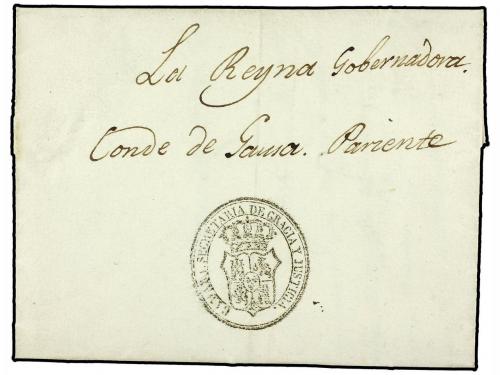 La Reyna Gobernadora.
Conde de Gausa. Pariente
SECRETARIA DE GRACIA Y JUSTICIA